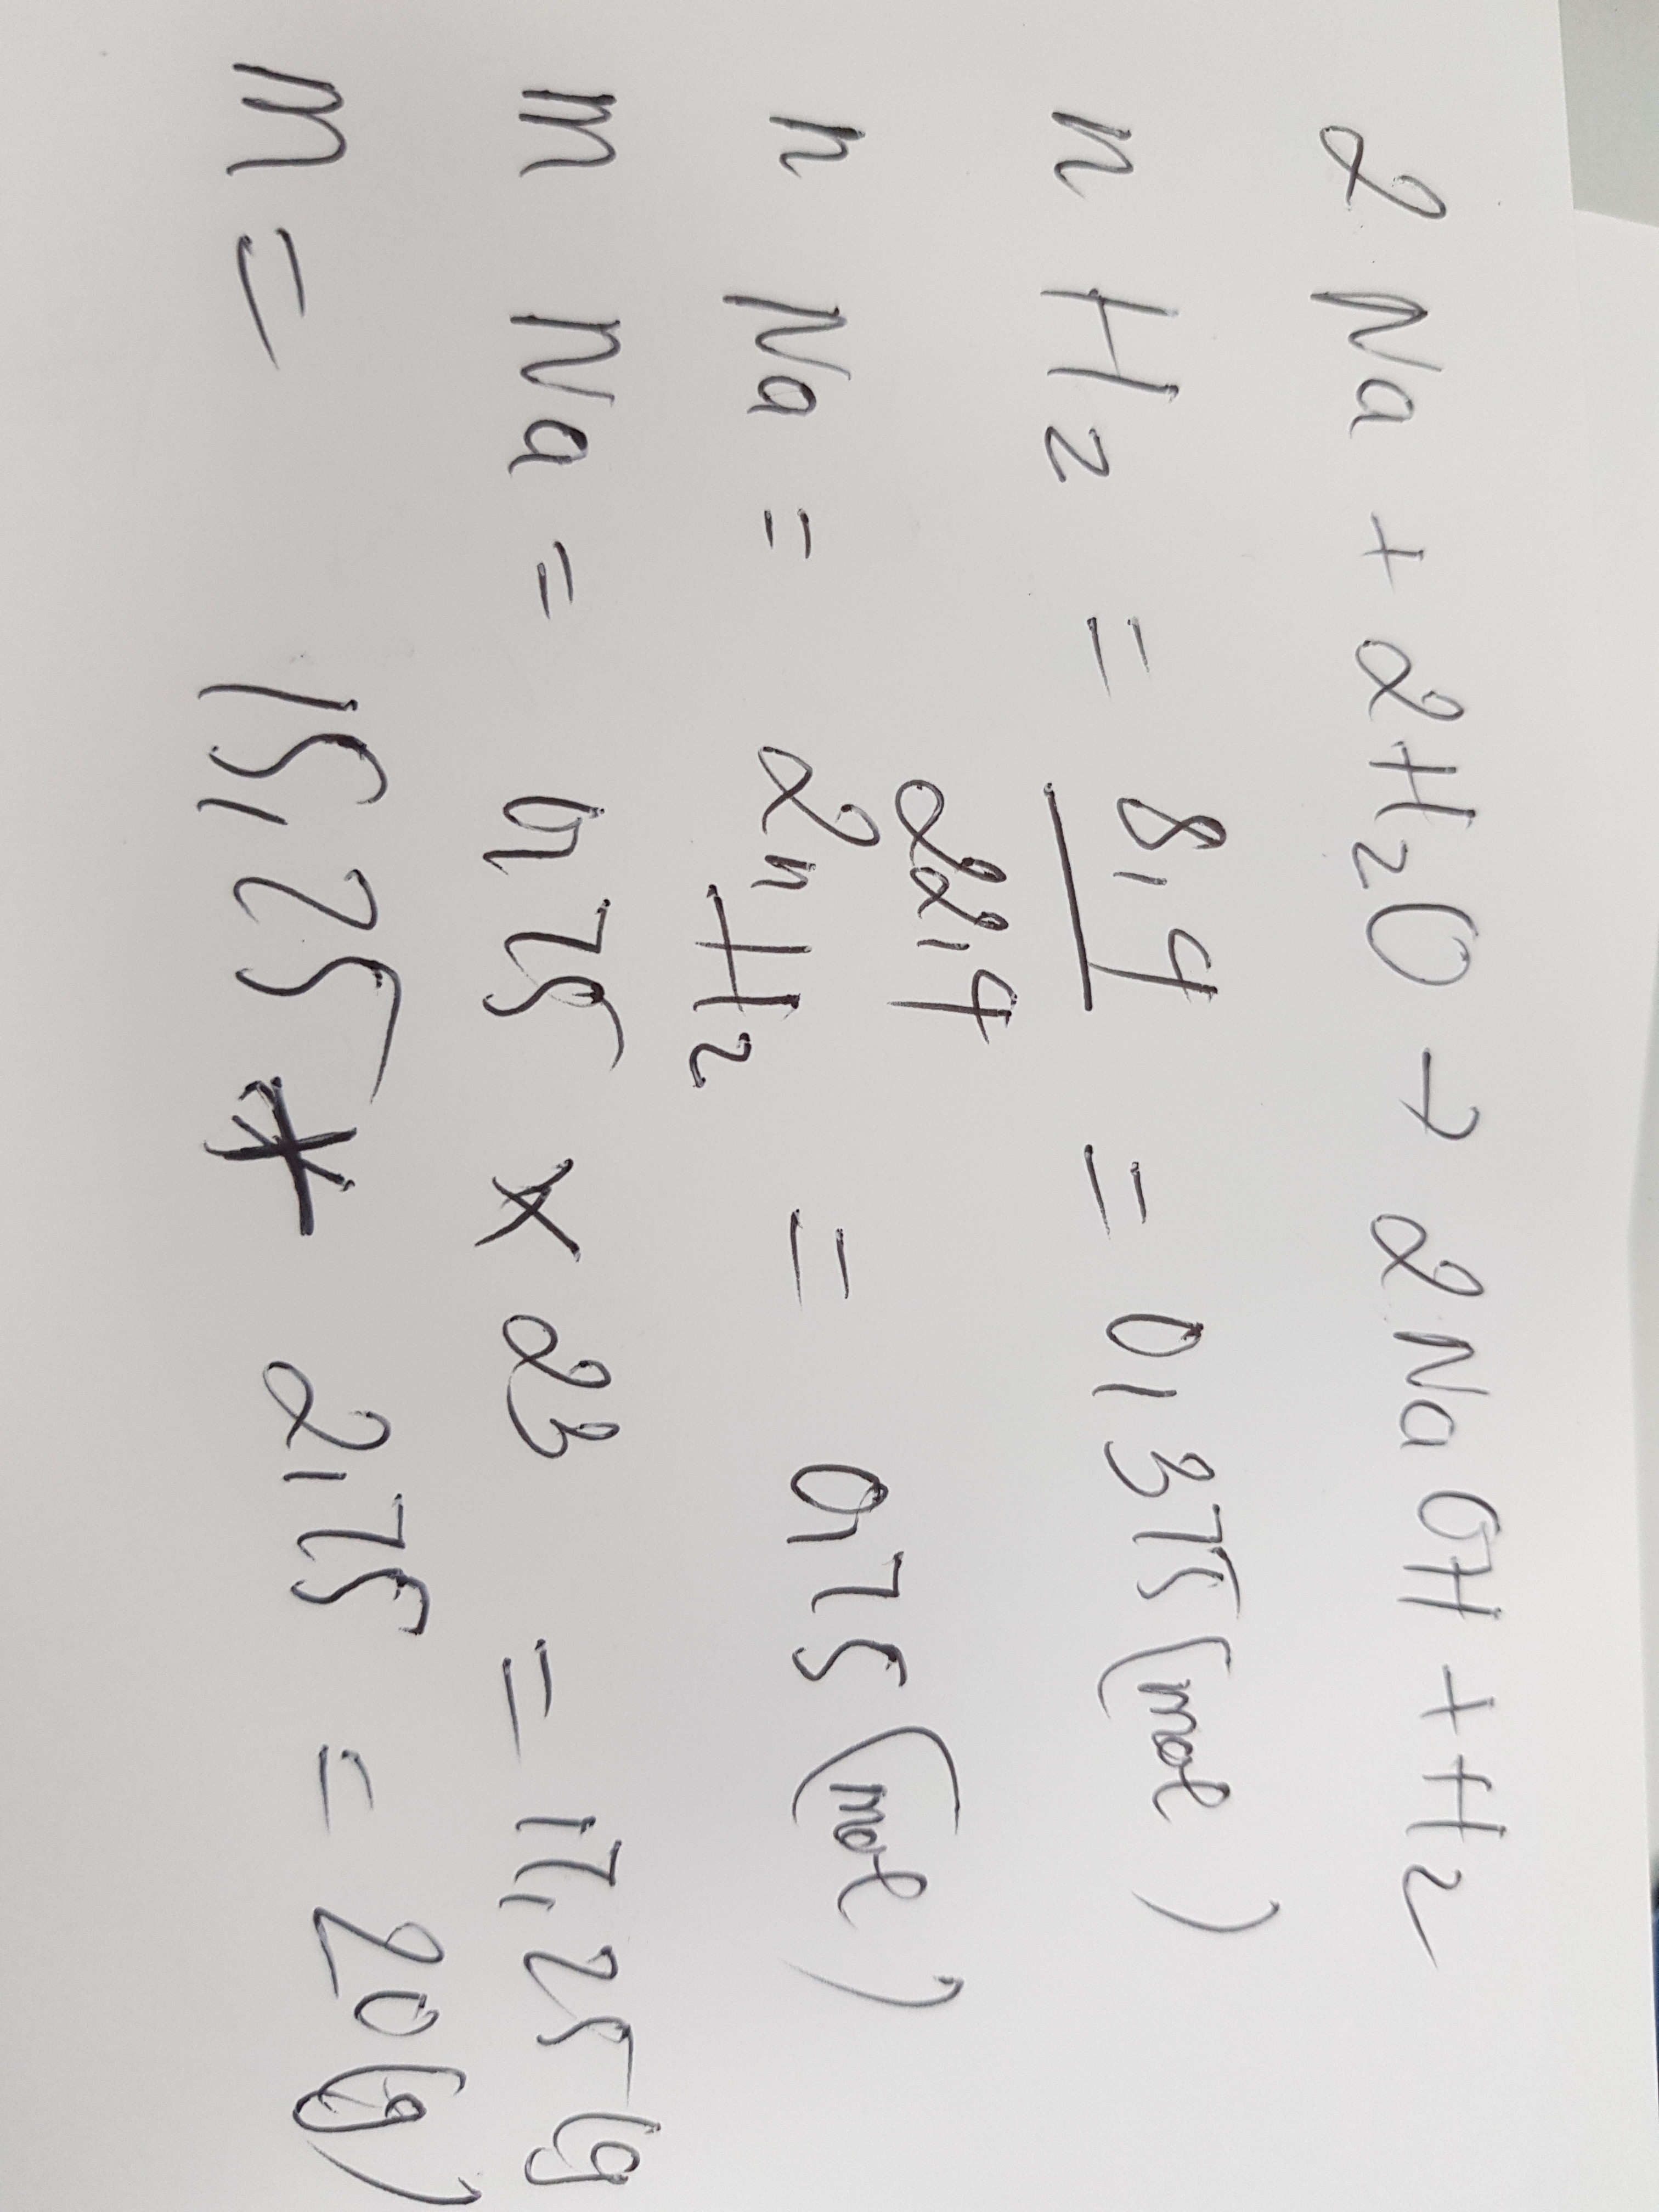 2 Na + 2H2O → 2NaOH + H2
n H2 = 8,4 / 22,4 = 0,375 (mol)
n Na = 2nH2 = 0,75 (mol)
m Na = 0,75 x 23 = 17,25 (g
m = 15,25 * 2,75 = 20 (g)